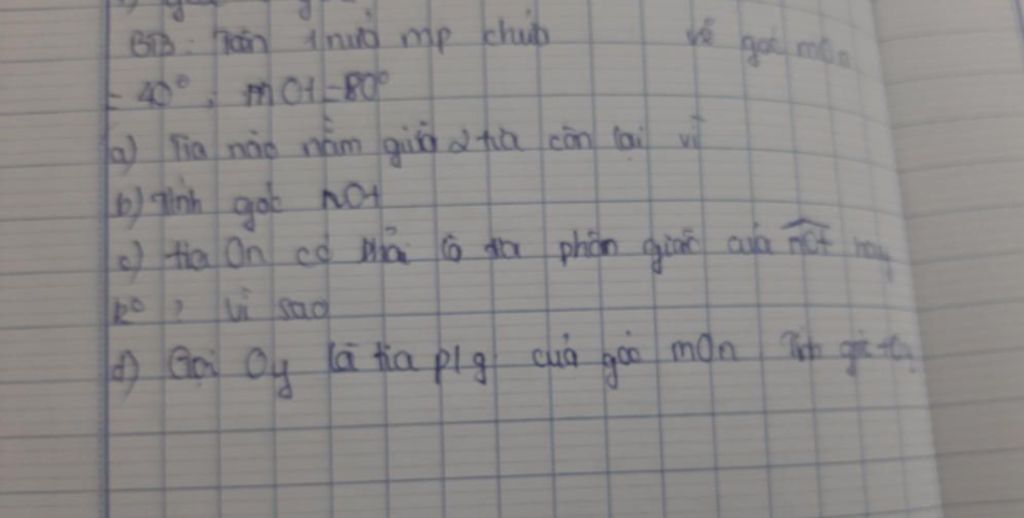 BT3: Trên 1 nửa mp chứa vẽ góc mOn
= 40°, mOt = 80°
a) Tia nào nằm giữa 2 tia còn lại vì
b) Tính góc nOt
c) tia On có phải là tia phân giác của
ko, vì sao
d) Gọi Oy là tia p/g của góc mOn Tính góc